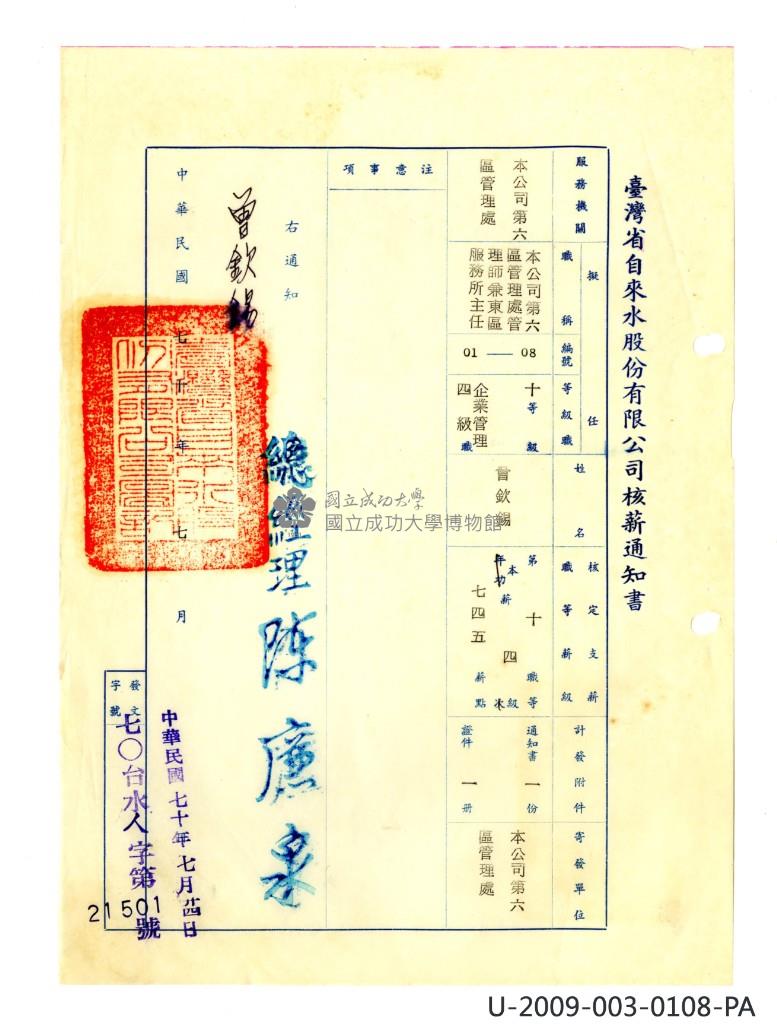 臺灣省自來水股份有限公司核薪通知書
服務機關
本公司第六
區管理處
擬任
職稱
本公司第六
區管理處管
理師兼東區
服務所主任
編號
01—08
等級職
十等級
企業管理職
四級
姓名
曾欽錫
核定支薪
職等薪級
第十職等
本薪四級
年功
七四五薪點
計發附件
通知書一份
證件一冊
寄發單位
本公司第六
區管理處
注意事項
右通知
曾欽錫
總經理陳廉泉
中華民國七十年七月
中華民國七十年七月廿四日
發文字號
七〇台水人字第21501號
國立成功大學
國立成功大學博物館
U-2009-003-0108-PA